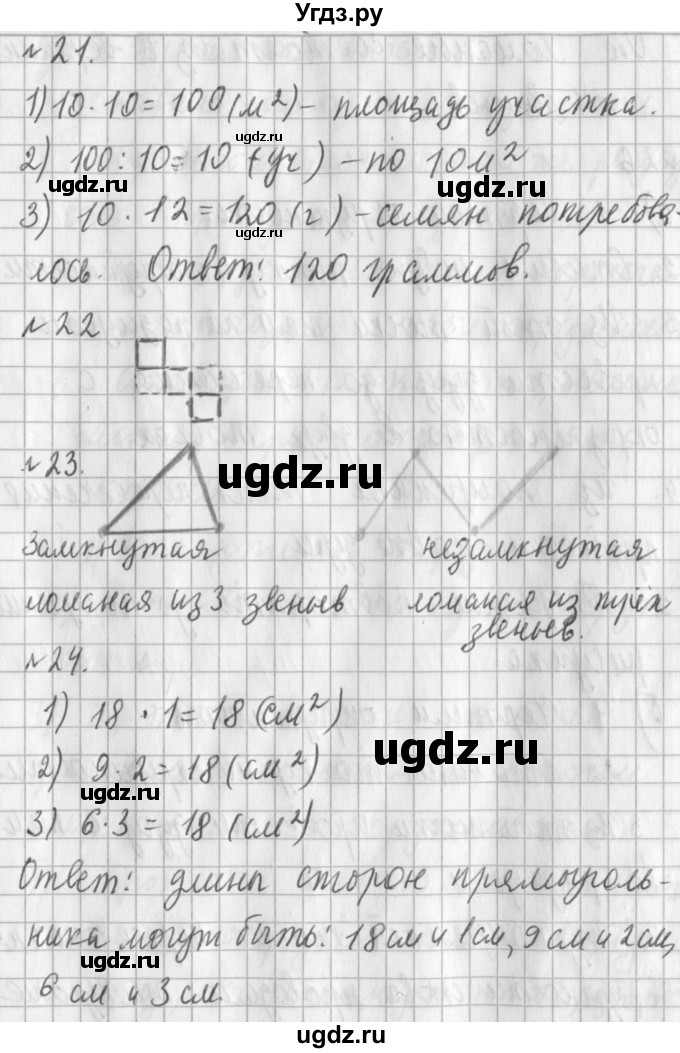 Угдз.ру
№ 21.
1) 10 · 10 = 100 (м²) – площадь участка.
ugdz.ru
2) 100 : 10 = 10 (уч) – по 10 м²
ugdz.ru ugdz.ru
3) 10 · 12 = 120 (г) – семян потребова-
ugdz.ru
лось. Ответ: 120 граммов.
№ 22
№ 23.
ugdz.ru
Замкнутая незамкнутая
ломаная из 3 звеньев ломаная из трёх
звеньев.
№ 24.
1) 18 · 1 = 18 (см²)
ugdz.ru
2) 9 · 2 = 18 (см²)
ugdz.ru
3) 6 · 3 = 18 (см²)
Ответ: длины сторон прямоуголь-
ника могут быть: 18 см и 1 см, 9 см и 2 см,
ugdz.ru
6 см и 3 см.
ugdz.ru